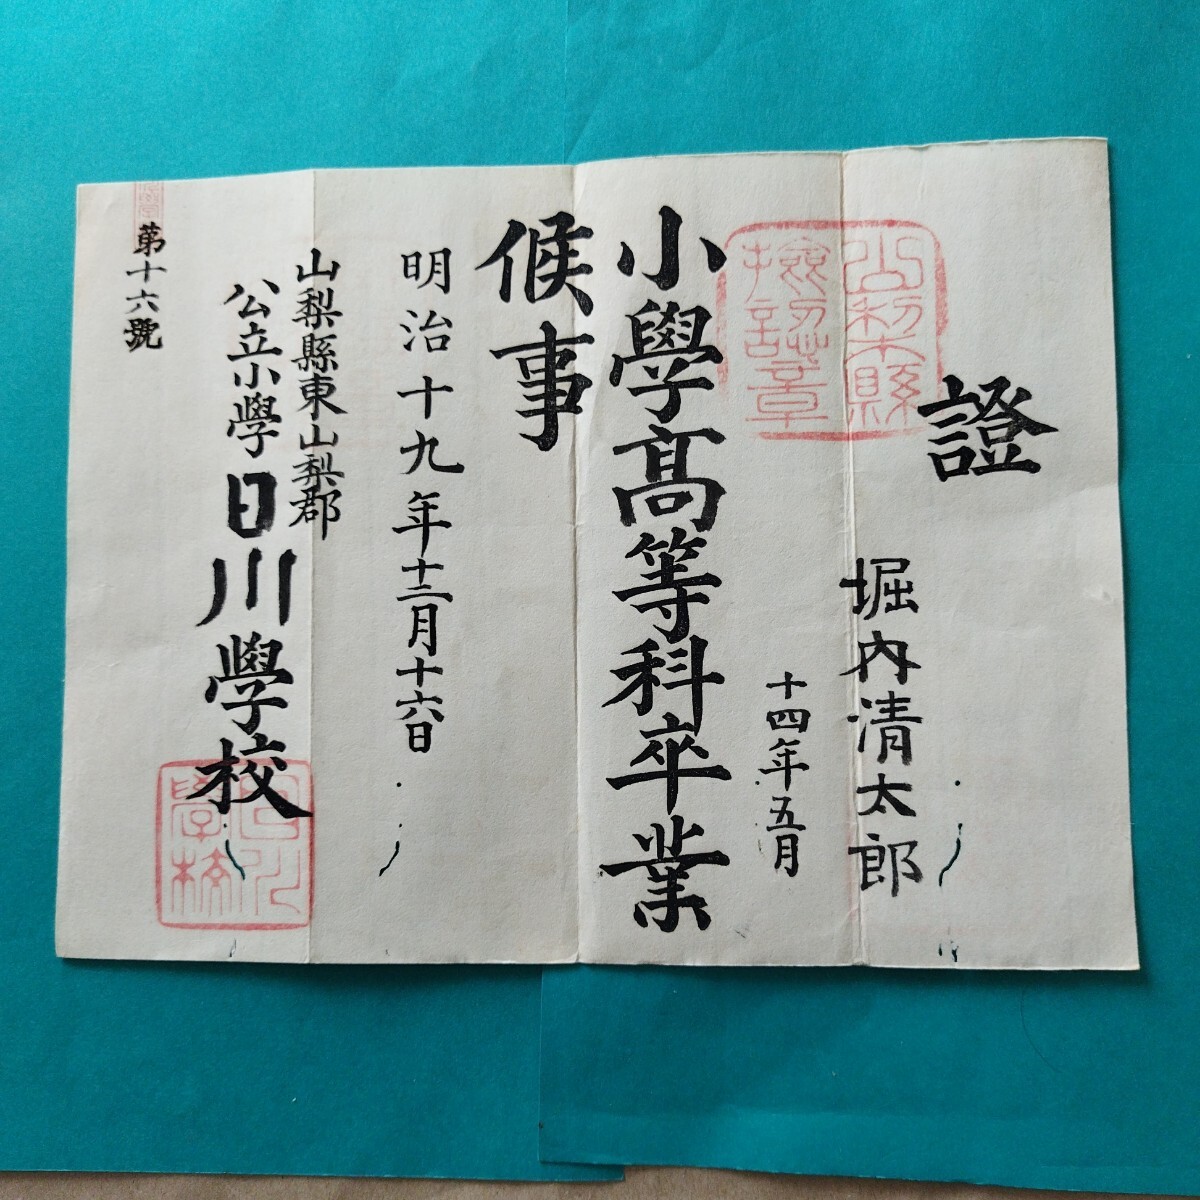 證
堀内清太郎
十四年五月
山梨縣
撿認章
小學高等科卒業
候事
明治十九年十二月十六日
山梨縣東山梨郡
公立小學日川學校
第十六號